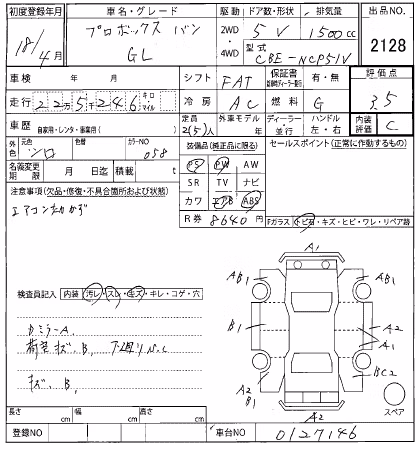 初度登録年月 車名・グレード 駆動 ドア数・形状 排気量 出品NO.
18/4月 プロボックス バン 2WD・4WD 5 V 1500cc 2128
GL 型式 CBE-NCP51V
車検 年 月 シフト FAT 保証書 有・無 評価点
走行 22万5千246 キロ マイル 冷房 AC 燃料 G 3.5
車歴 自家用・レンタ・事業用( ) 定員 2(5)人 外車モデル 年 ディーラー・並行 ハンドル 左・右 内装評価 C
外色 元色 シロ 色替 カラーNO 058 装備品(純正品に限る) セールスポイント(正常に作動するもの)
名義変更期限 月 日迄 積載 t PS PW AW
SR TV ナビ
注意事項(欠品・修復・不具合箇所および状態) カワ エアB ABS
R券 8640円 Fガラス トビ石・キズ・ヒビ・ワレ・リペア跡
A1
AB1 AB1
検査員記入 内装 汚レ・スレ・キズ・キレ・コゲ・穴
B1 A2
A1
荷室キズ、B、
キズ、B、 A2 B1 BC2
A2 スペア
長さ cm 幅 cm 高さ cm
登録NO 車台NO 0127146